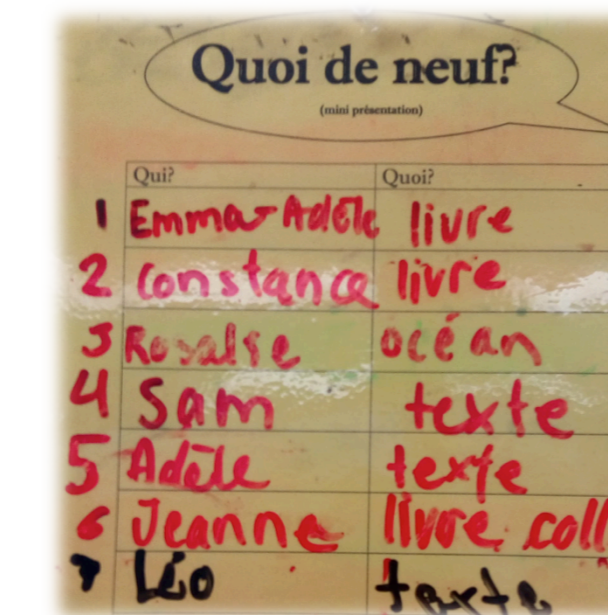 Quoi de neuf?
(mini présentation)
Qui? Quoi?
1 Emma-Adèle livre
2 Constance livre
3 Rosalie océan
4 Sam texte
5 Adèle texte
6 Jeanne livre coll
7 Léo texte